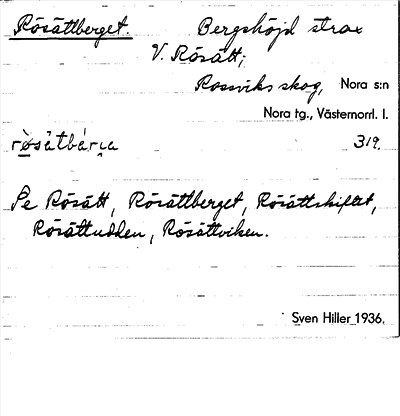 Rösättberget. Bergshöjd strax
V. Rösätt;
Rossviks skog, Nora s:n
Nora tg., Västernorrl. l.
319.
Pe Rösätt, Rösättberget, Rösättskiftet,
Rösättudden, Rösättviken.
Sven Hiller 1936.